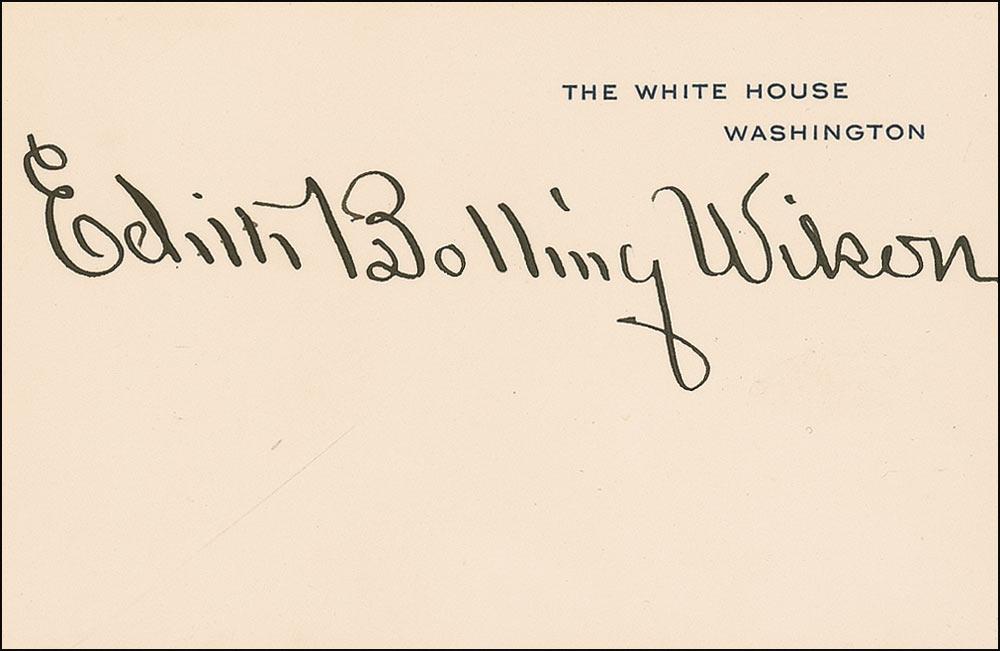 THE WHITE HOUSE
WASHINGTON
Edith Bolling Wilson